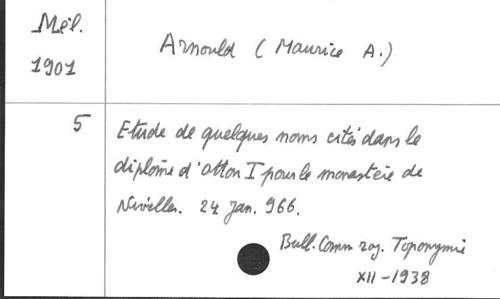 Mél.
1901
Arnould (Maurice A.)
5
Etude de quelques noms cités dans le
diplôme d'Otton I pour le monastère de
Nivelles. 24 Jan. 966.
Bull. Comm roy. Toponymie
XII-1938